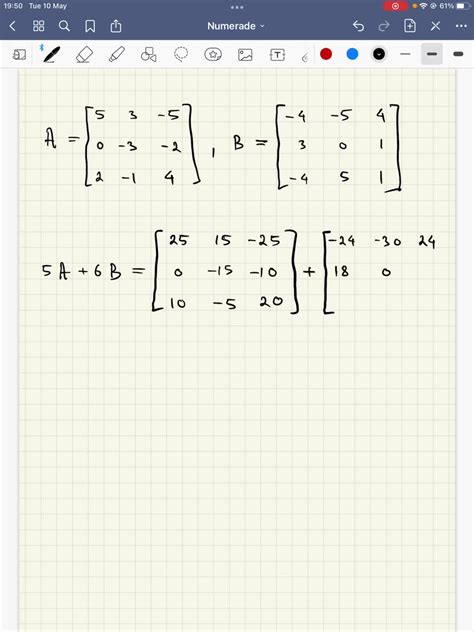 19:50 Tue 10 May 61%
Numerade
A = [5 3 -5
0 -3 -2
2 -1 4] , B = [-4 -5 4
3 0 1
-4 5 1]
5A + 6B = [25 15 -25
0 -15 -10
10 -5 20] + [-24 -30 24
18 0